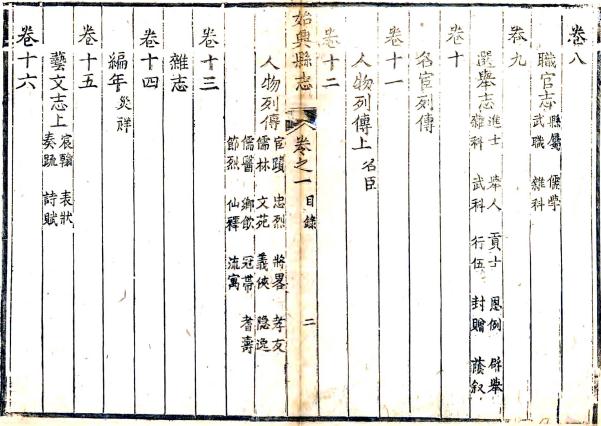 卷八
職官志 縣屬 儒學
武職 雜科
卷九
選舉志 進士 舉人 貢士 恩例 辟舉
雜科 武科 行伍 封贈 蔭叙
卷十
名宦列傳
卷十一
人物列傳上 名臣
卷十二
始興縣志 卷之一 目錄 二
人物列傳 宦蹟 忠烈 將畧 孝友
儒林 文苑 義俠 隐逸
儒醫 鄉飲 冠帶 耆壽
節烈 仙釋 流寓
卷十三
雜志
卷十四
編年 災祥
卷十五
藝文志上 宸翰 表狀
奏疏 詩賦
卷十六